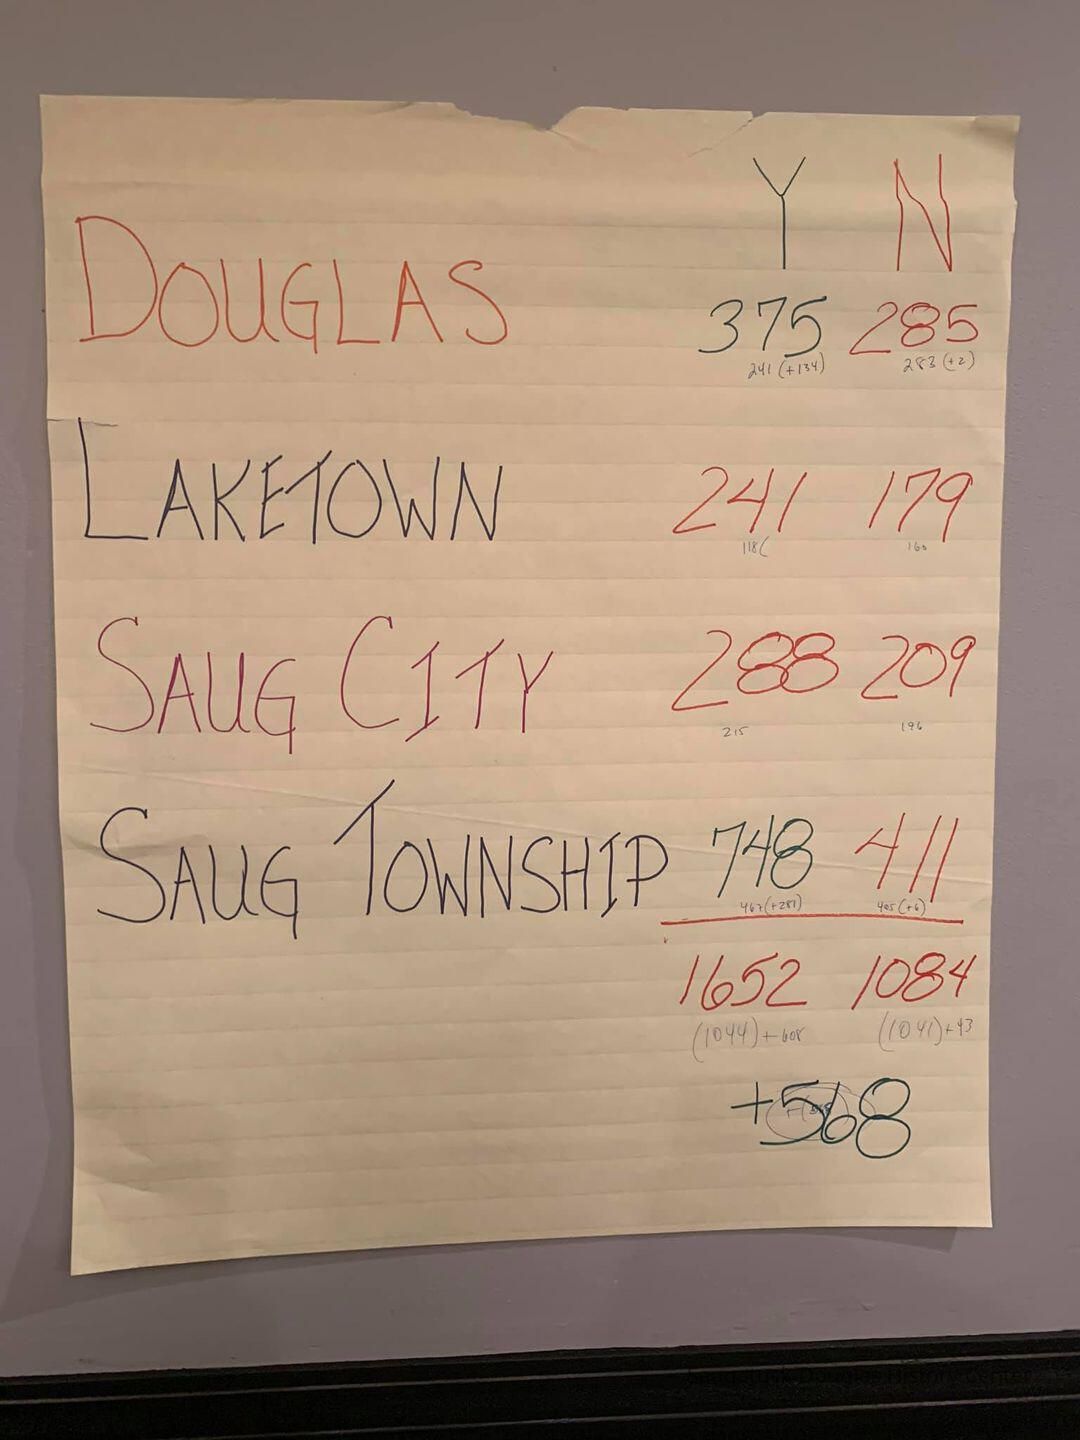 Y N
DOUGLAS 375 285
241 (+134) 283 (+2)
LAKETOWN 241 179
118( 160
SAUG CITY 288 209
215 196
SAUG TOWNSHIP 748 411
467 (+281) 405 (+6)
1652 1084
(1044) + 608 (1041) + 43
+568